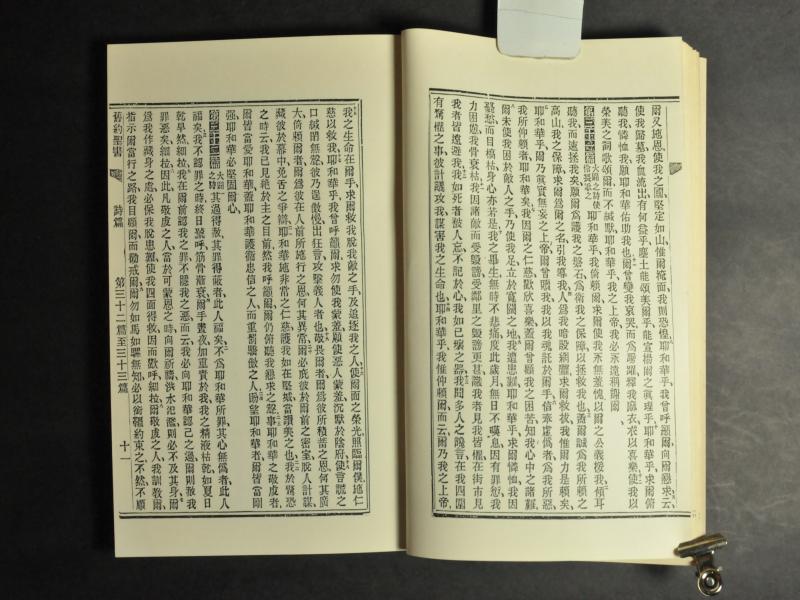 爾又施恩使我之國堅定如山惟爾掩面我則恐惶耶和華乎我曾呼籲爾向爾懇求云
使我歸墓我血流出有何益乎塵土能頌美爾乎能宣揚爾之眞理乎耶和華乎求爾俯
聽我憐恤我願耶和華佑助我也爾曾變我哀哭而爲踴躍釋我麻衣衣以喜樂使我以
榮美之詞歌頌爾而不緘默耶和華我之上帝我必永遠稱謝爾
第三十一篇大闢之詩使伶長歌之耶和華乎我倚賴爾求爾使我永不羞愧以爾之公義拯我傾耳
聽我而速拯我矣願爾爲護我之磐石爲衞我之保障以拯救我也蓋爾誠爲我所賴之
高山我之保障求爾爲爾之名引我導我人爲我暗設網羅求爾救我惟爾力是賴矣
耶和華乎爾乃眞實無妄之上帝爾曾贖我我以我魂託於爾手信奉虛僞者爲我所惡
我所仰賴者耶和華矣我因爾之仁慈歡欣喜樂蓋爾曾顧我之困苦知我心中之諸難
爾未使我困於敵人之手乃使我足立於寬闊之地我遭患難耶和華乎求爾憐恤我因
憂愁而目槁枯身心亦若是我之畢生無時不悲傷度此歲月無日不嘆息因有罪愆我
力困憊我骨衰枯我因諸敵而受毀謗受鄰里之毀謗更甚識我者見我皆懼在街市見
我者皆遠避我我如死者被人忘不記於心我如已壞之器我聞多人之讒言在我四圍
有驚懼之事彼計議攻我謀害我之生命也耶和華乎我惟仰賴爾而云爾乃我之上帝
我之生命在爾手求爾救我脫我敵之手及追逐我之人使爾面之榮光照臨爾僕施仁
慈以救我耶和華乎我曾呼籲爾求勿使我蒙羞願使惡人蒙羞沉默於陰府使言謊之
口緘閉無聲彼乃逞傲慢出狂言攻擊義人者也敬畏爾者爾爲彼所積蓄之恩何其廣
大倚賴爾者爾爲彼在人前所施行之恩何其廣爾必庇彼於爾前之密室脫人計謀
藏彼於幕中免舌之爭辯耶和華施非常之仁慈護我如在堅城當讚美之也我於驚恐
之時云我已見絕於主之目前然我呼籲爾爾仍俯聽我懇求之聲事耶和華之敬虔者
爾皆當愛耶和華蓋耶和華護衞忠信之人而重罰驕傲之人盼望耶和華者爾皆當剛
强耶和華必堅固爾心
第三十二篇大闢之詩其過得赦其罪得蔽者此人福矣不爲耶和華所罪其心無僞者此人
福矣我不認罪之時終日號呼筋骨衰爾手晝夜加重責於我我之精液枯乾如夏日
乾旱然細拉我在爾前認我之罪不隱我之惡而云我必向耶和華認己之過爾則赦我
罪惡矣細拉因此凡敬虔之人當於可蒙恩之時向爾祈禱洪水氾濫則必不及其身爾
爲我作藏身之處必保我脫患難使我四面得救因而歡呼細拉爾敬虔之人我訓敎爾
指示爾當行之路我目顧爾而勸戒爾爾勿如馬如騾無知必以銜韁約束之不然不順
舊約聖書
詩篇
第三十二篇至三十三篇
十一